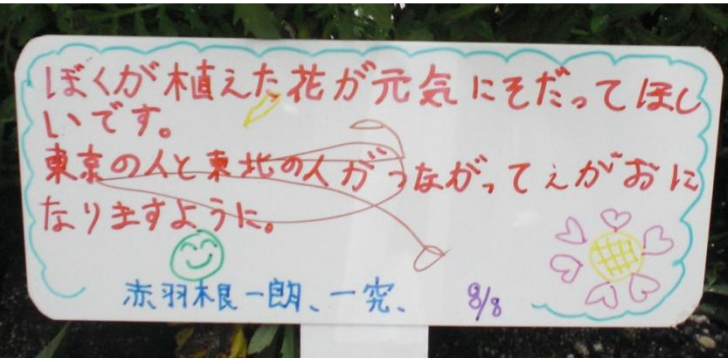 ぼくが植えた花が元気にそだってほし
いです。
東京の人と東北の人がつながってえがおに
なりますように。
赤羽根一朗、一究、 8/8